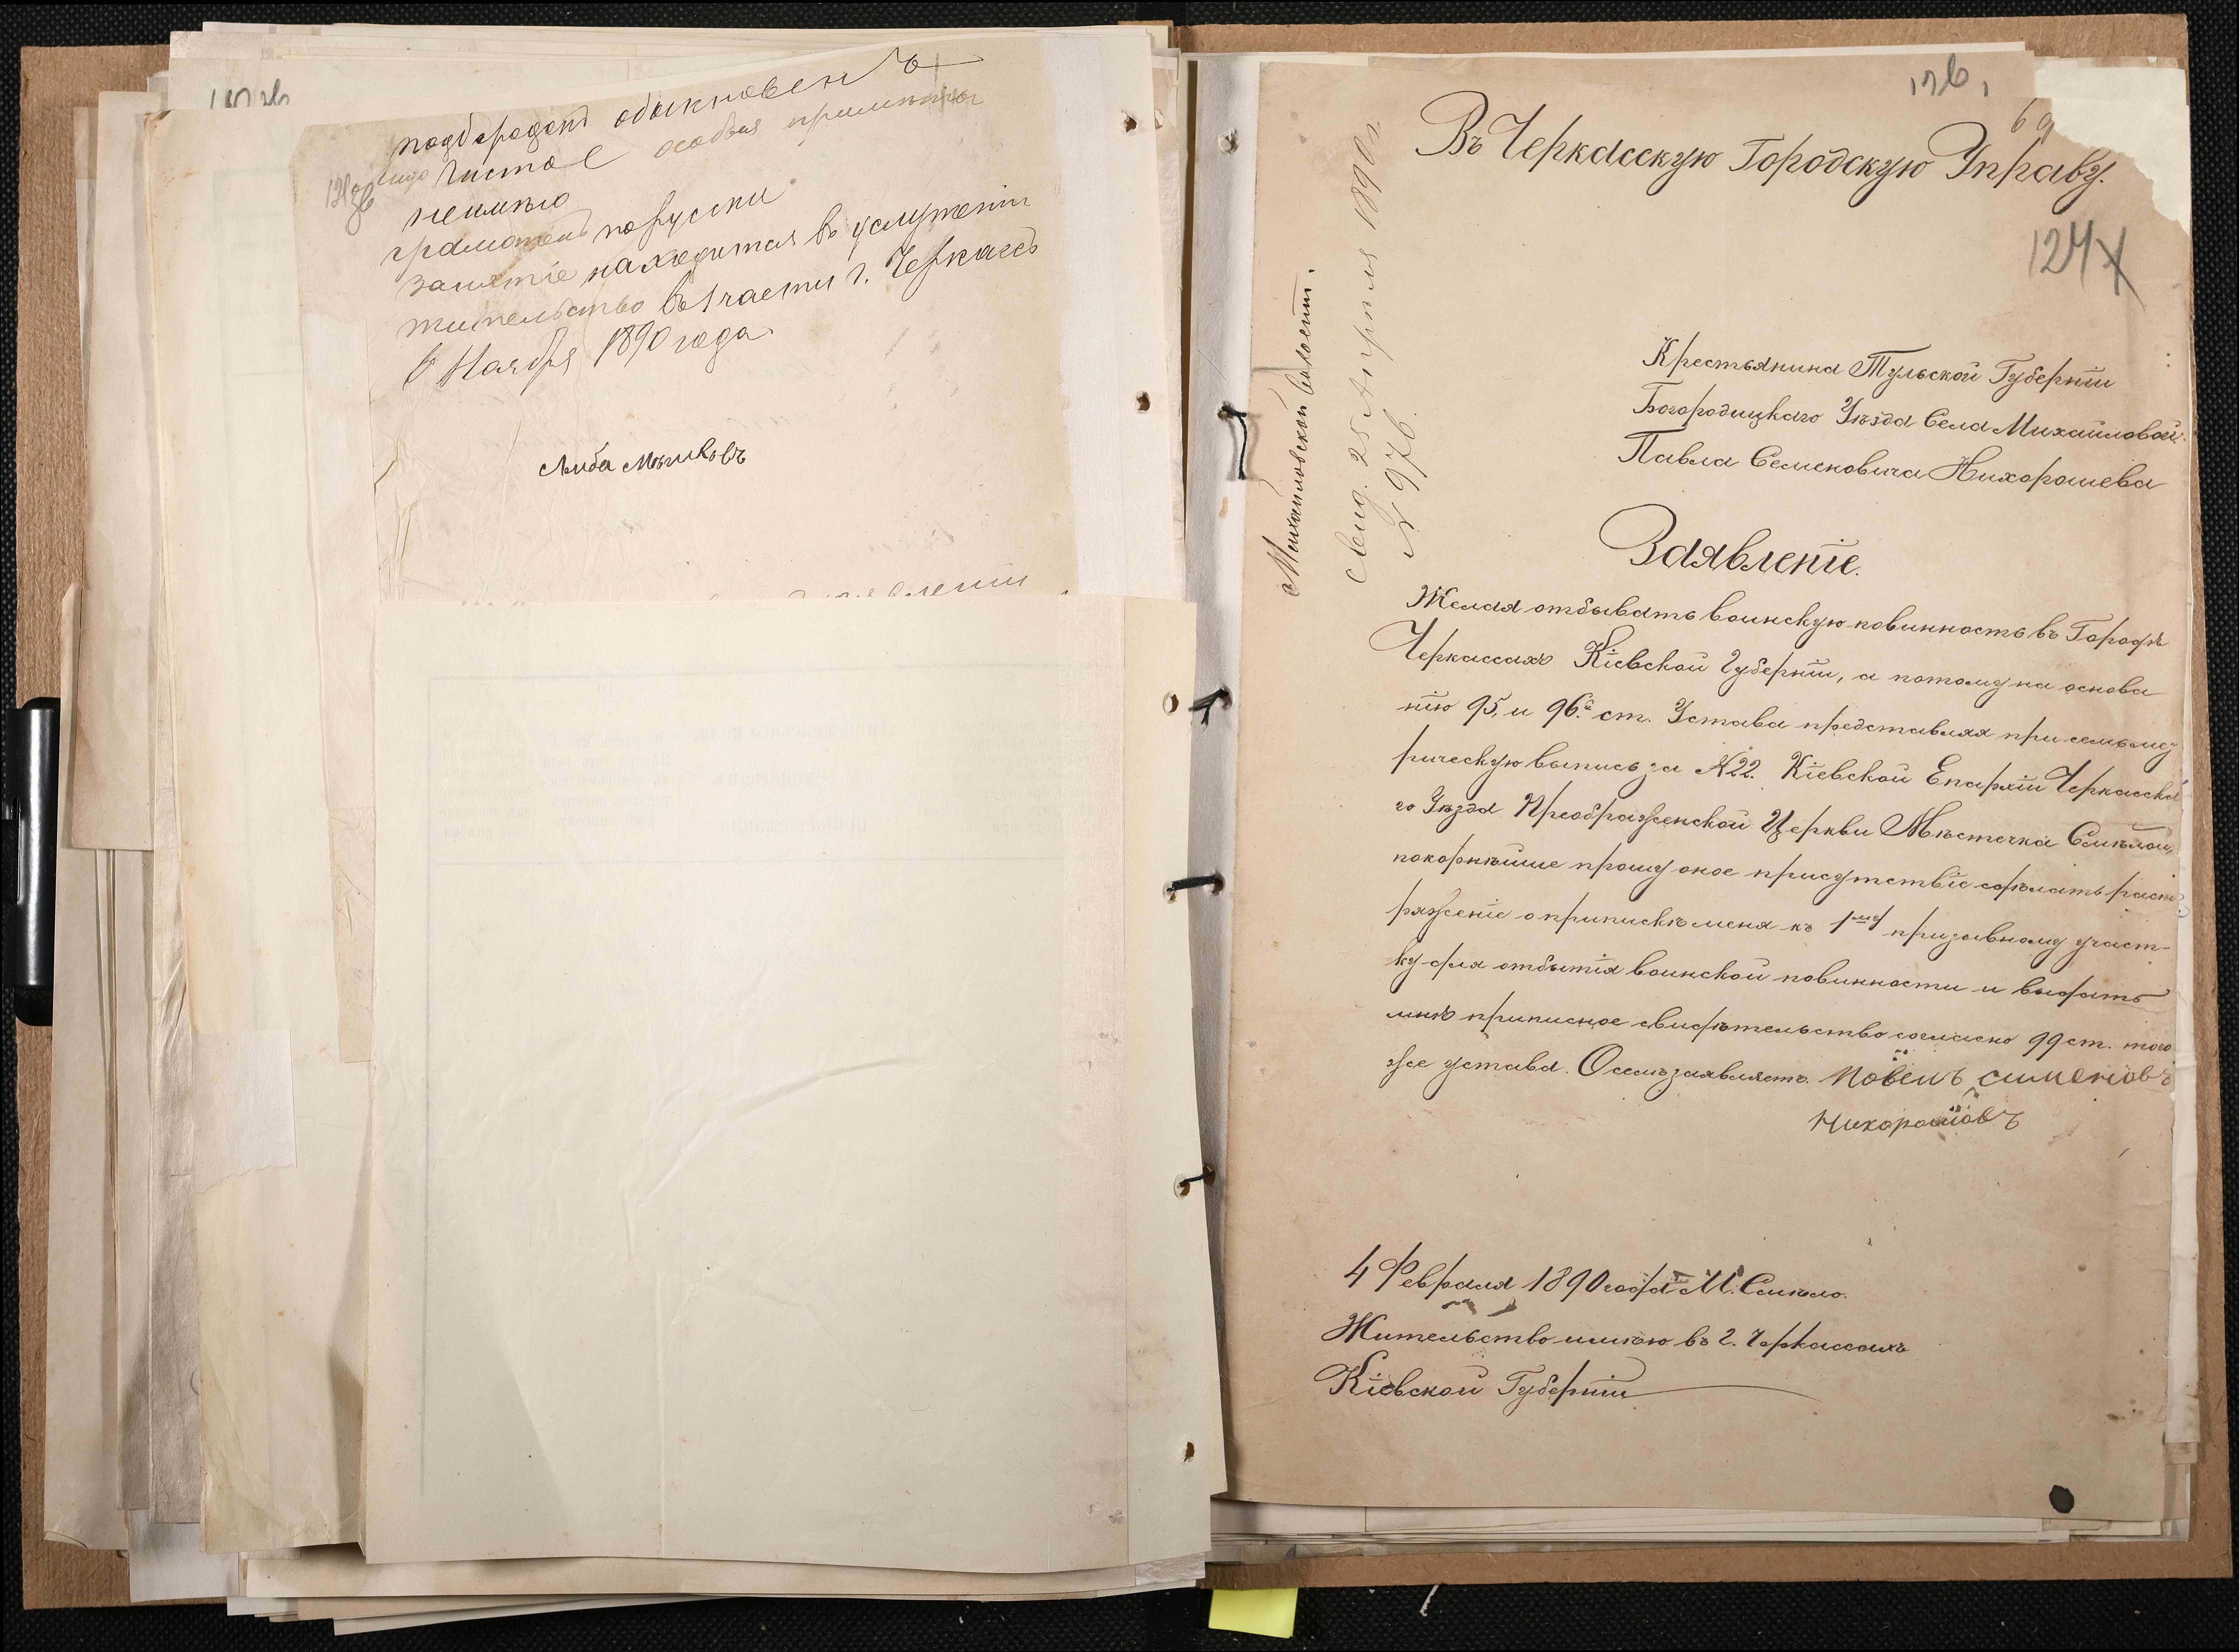 подбородокъ обыкновенъ
лицо чистое особыя приметы
неимею
грамотенъ по русски
занятіе находится въ услуженіи
жительство въ 1 части г. Черкасъ
6 Ноября 1890 года
Либа Мошковъ
126
Въ Черкасскую Городскую Управу.
124
Крестьянина Тульской Губерніи
Богородицкаго Уѣзда Села Михайловой
Павла Семеновича Нихорошева
Заявленіе.
Желая отбывать воинскую повинность въ Городѣ
Черкассахъ Кіевской Губерніи, а потому на основа
нію 95, и 96.й ст. Устава представляя при семъ мет
рическую выпись за №22. Кіевской Епархіи Черкасска
го Уѣзда Преображенской Церкви Мѣстечка Смѣлой,
покорнѣйше прошу оное присутствіе сдѣлать распо
ряженіе о припискѣ меня къ 1му призывному участ-
ку для отбытія воинской повинности и выдать
мнѣ приписное свидѣтельство согласно 99 ст. того
же устава. О семъ заявляетъ. Повелъ сименовъ
Нихорошовъ
4 Февраля 1890 года М. Смѣло.
Жительство имѣю въ г. Черкассахъ
Кіевской Губерніи
Михайловской волости.
Свид. 25 Апреля 1890 г.
№ 976.